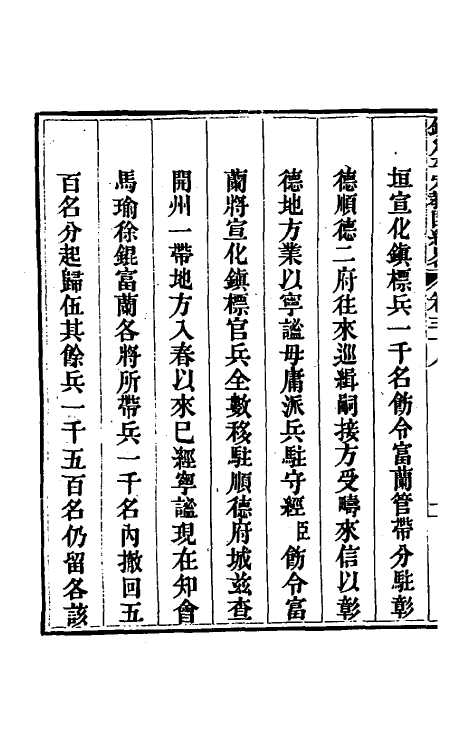 垣宣化鎭標兵一千名飭令富蘭管帶分駐彰
德順德二府往來巡緝嗣接方受疇來信以彰
德地方業以寧謐毋庸派兵駐守經臣飭令富
蘭將宣化鎭標官兵全數移駐順德府城兹查
開州一帶地方入春以來已經寧謐現在知會
馬瑜徐錕富蘭各將所帶兵一千名內撤回五
百名分起歸伍其餘兵一千五百名仍留各該